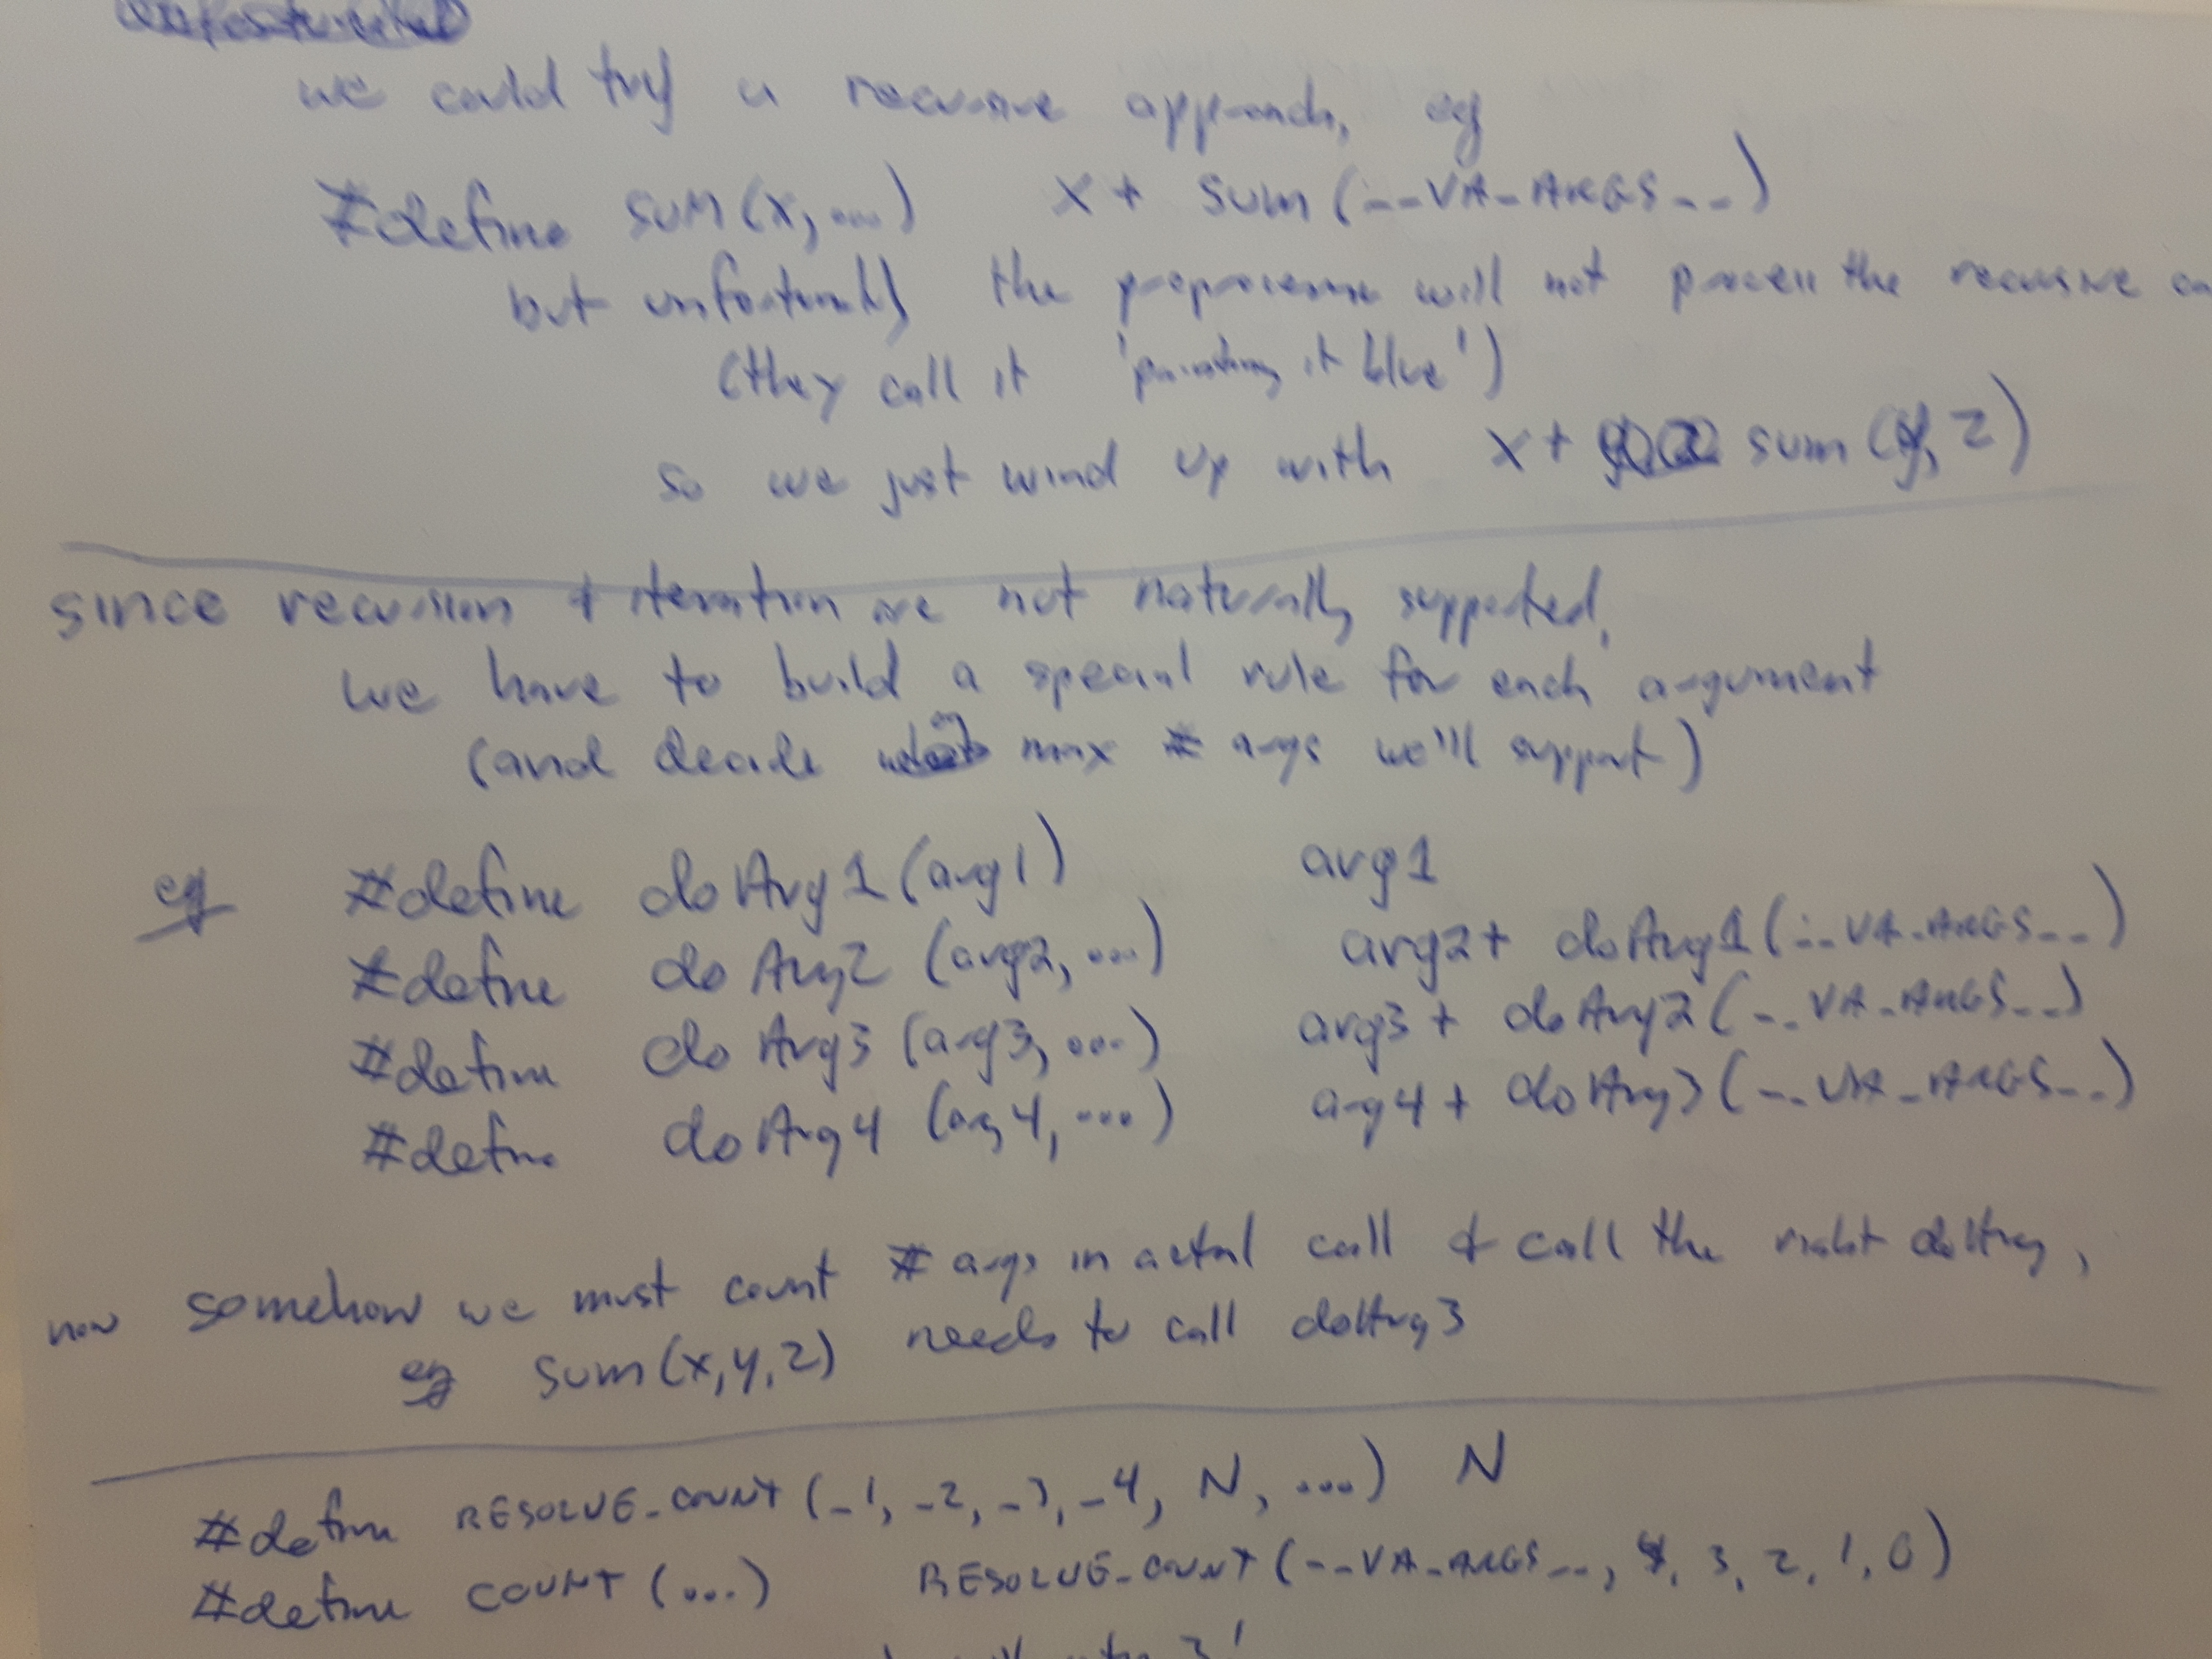 we could try a recursive approach, eg
#define sum(x, ...) x + sum(__VA_ARGS__)
but unfortunately the preprocessor will not process the recursive
(they call it 'painting it blue')
so we just wind up with x + sum(y, z)
since recursion & iteration are not naturally supported,
we have to build a special rule for each argument
(and decide on max # args we'll support)
eg #define doArg1(arg1) arg1
#define doArg2(arg2, ...) arg2 + doArg1(__VA_ARGS__)
#define doArg3(arg3, ...) arg3 + doArg2(__VA_ARGS__)
#define doArg4(arg4, ...) arg4 + doArg3(__VA_ARGS__)
now somehow we must count # args in actual call & call the right doArg,
eg sum(x,y,z) needs to call doArg3
#define RESOLVE_COUNT(_1, _2, _3, _4, N, ...) N
#define COUNT(...) RESOLVE_COUNT(__VA_ARGS__, 4, 3, 2, 1, 0)